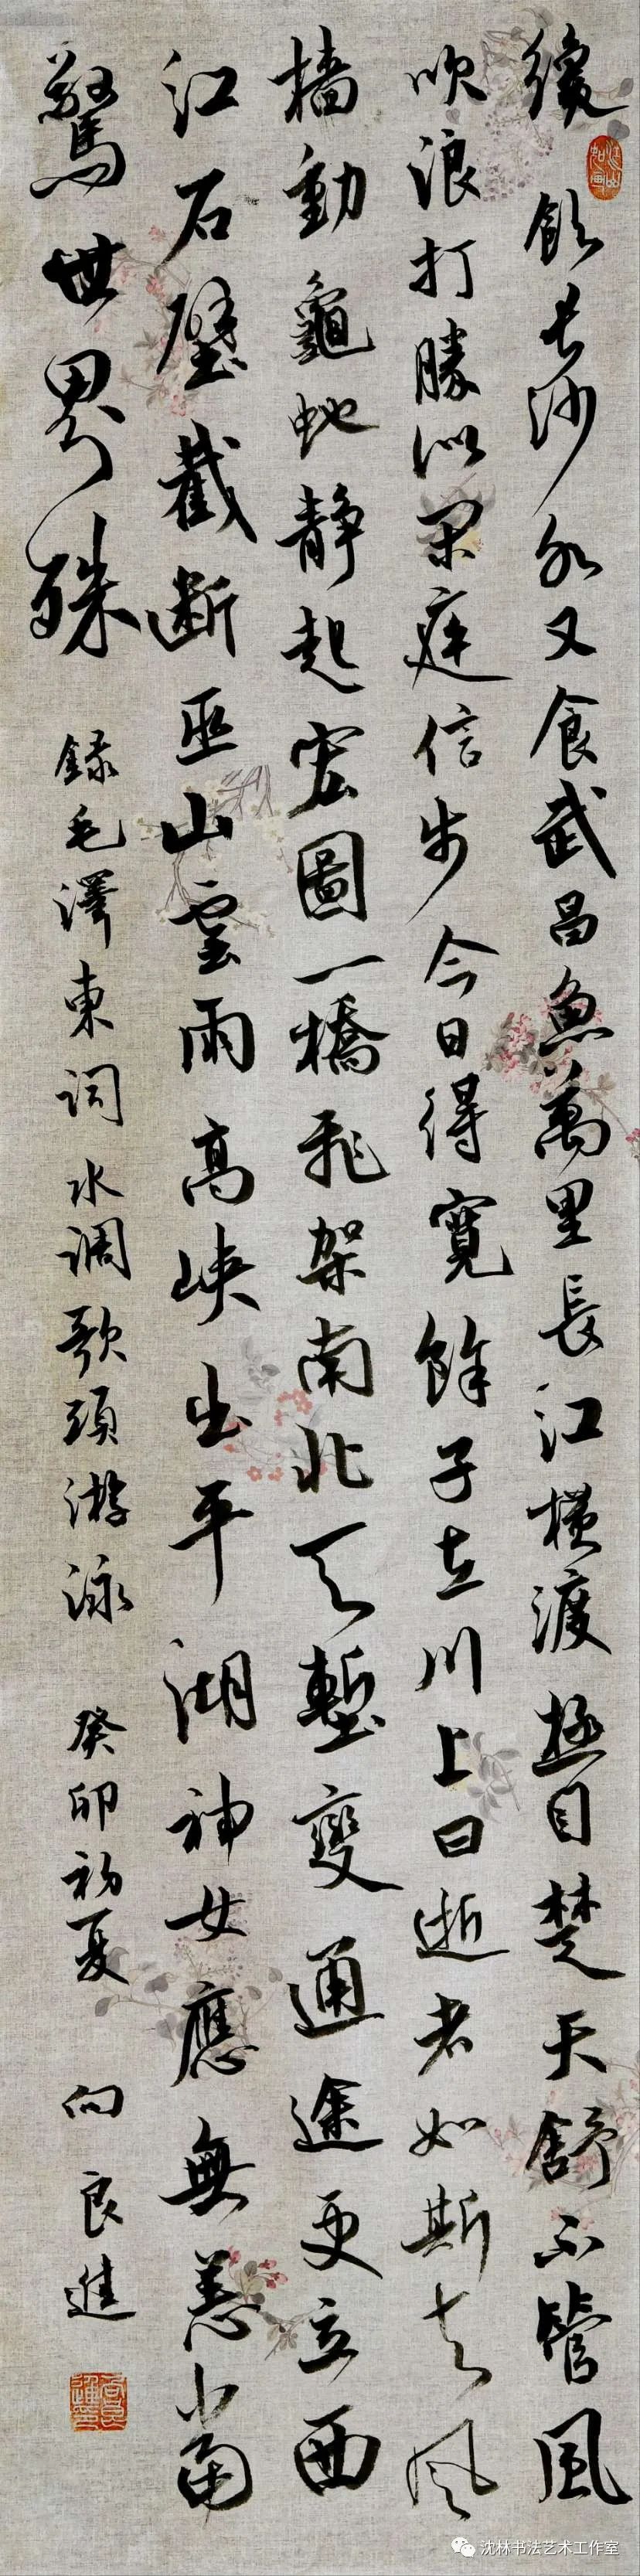 纔飲長沙水又食武昌魚萬里長江橫渡極目楚天舒不管風
江山如画
吹浪打勝似閑庭信步今日得寬餘子在川上曰逝者如斯夫風
檣動龜蛇靜起宏圖一橋飛架南北天塹變通途更立西
江石壁截斷巫山雲雨高峽出平湖神女應無恙當
驚世界殊 錄毛澤東詞水調歌頭游泳 癸卯初夏 向良進
沈林书法艺术工作室